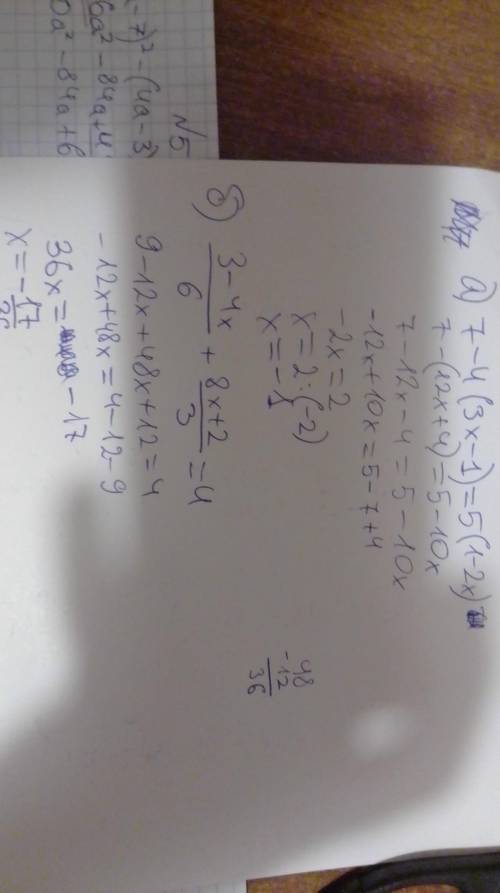 а) 7-4(3x-1)=5(1-2x)
7-(12x+4)=5-10x
7-12x-4=5-10x
-12x+10x=5-7+4
-2x=2
x=2:(-2)
x=-1
б) \frac{3-4x}{6} + \frac{8x+2}{3} = 4
9-12x+48x+12=4
-12x+48x=4-12-9
36x= -17
x=-\frac{17}{36}
48
-12
36
№5
-7)²-(4a-3)
6a²-84a+4
0a²-84a+6